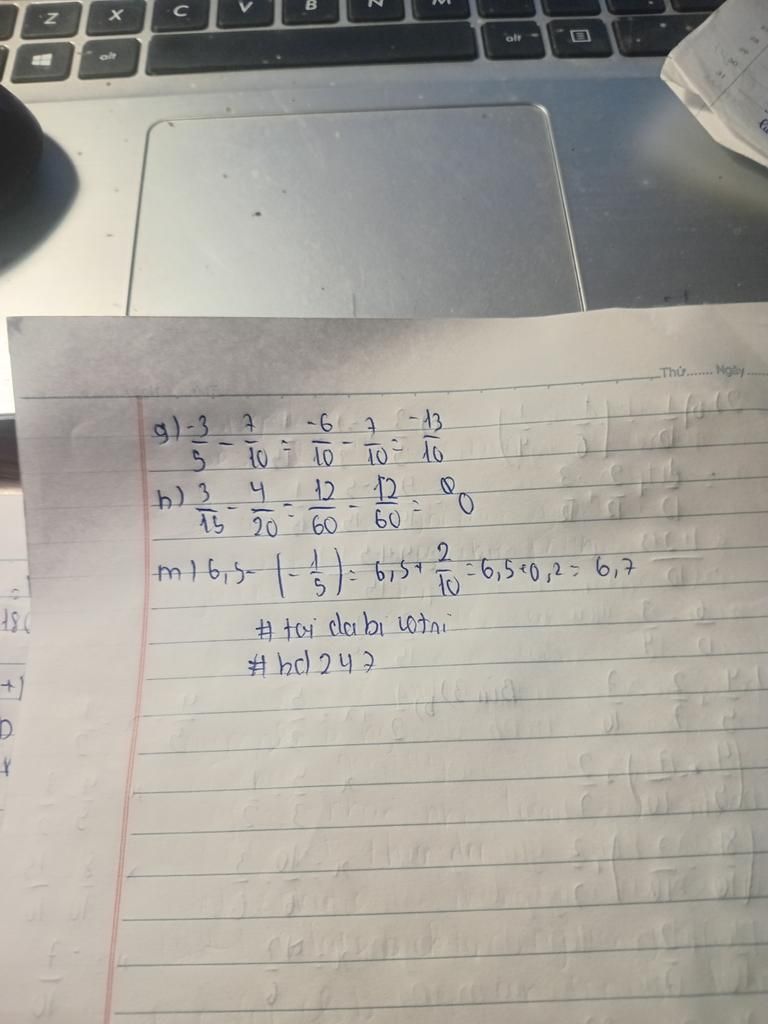 Z X C V B N M
alt alt
Thứ....... Ngày.....
g) -3/5 - 7/10 = -6/10 - 7/10 = -13/10
h) 3/15 - 4/20 = 12/60 - 12/60 = 0
m) 6,5 - (-1/5) = 6,5 + 2/10 = 6,5 + 0,2 = 6,7
# toi da bi
# hd 247